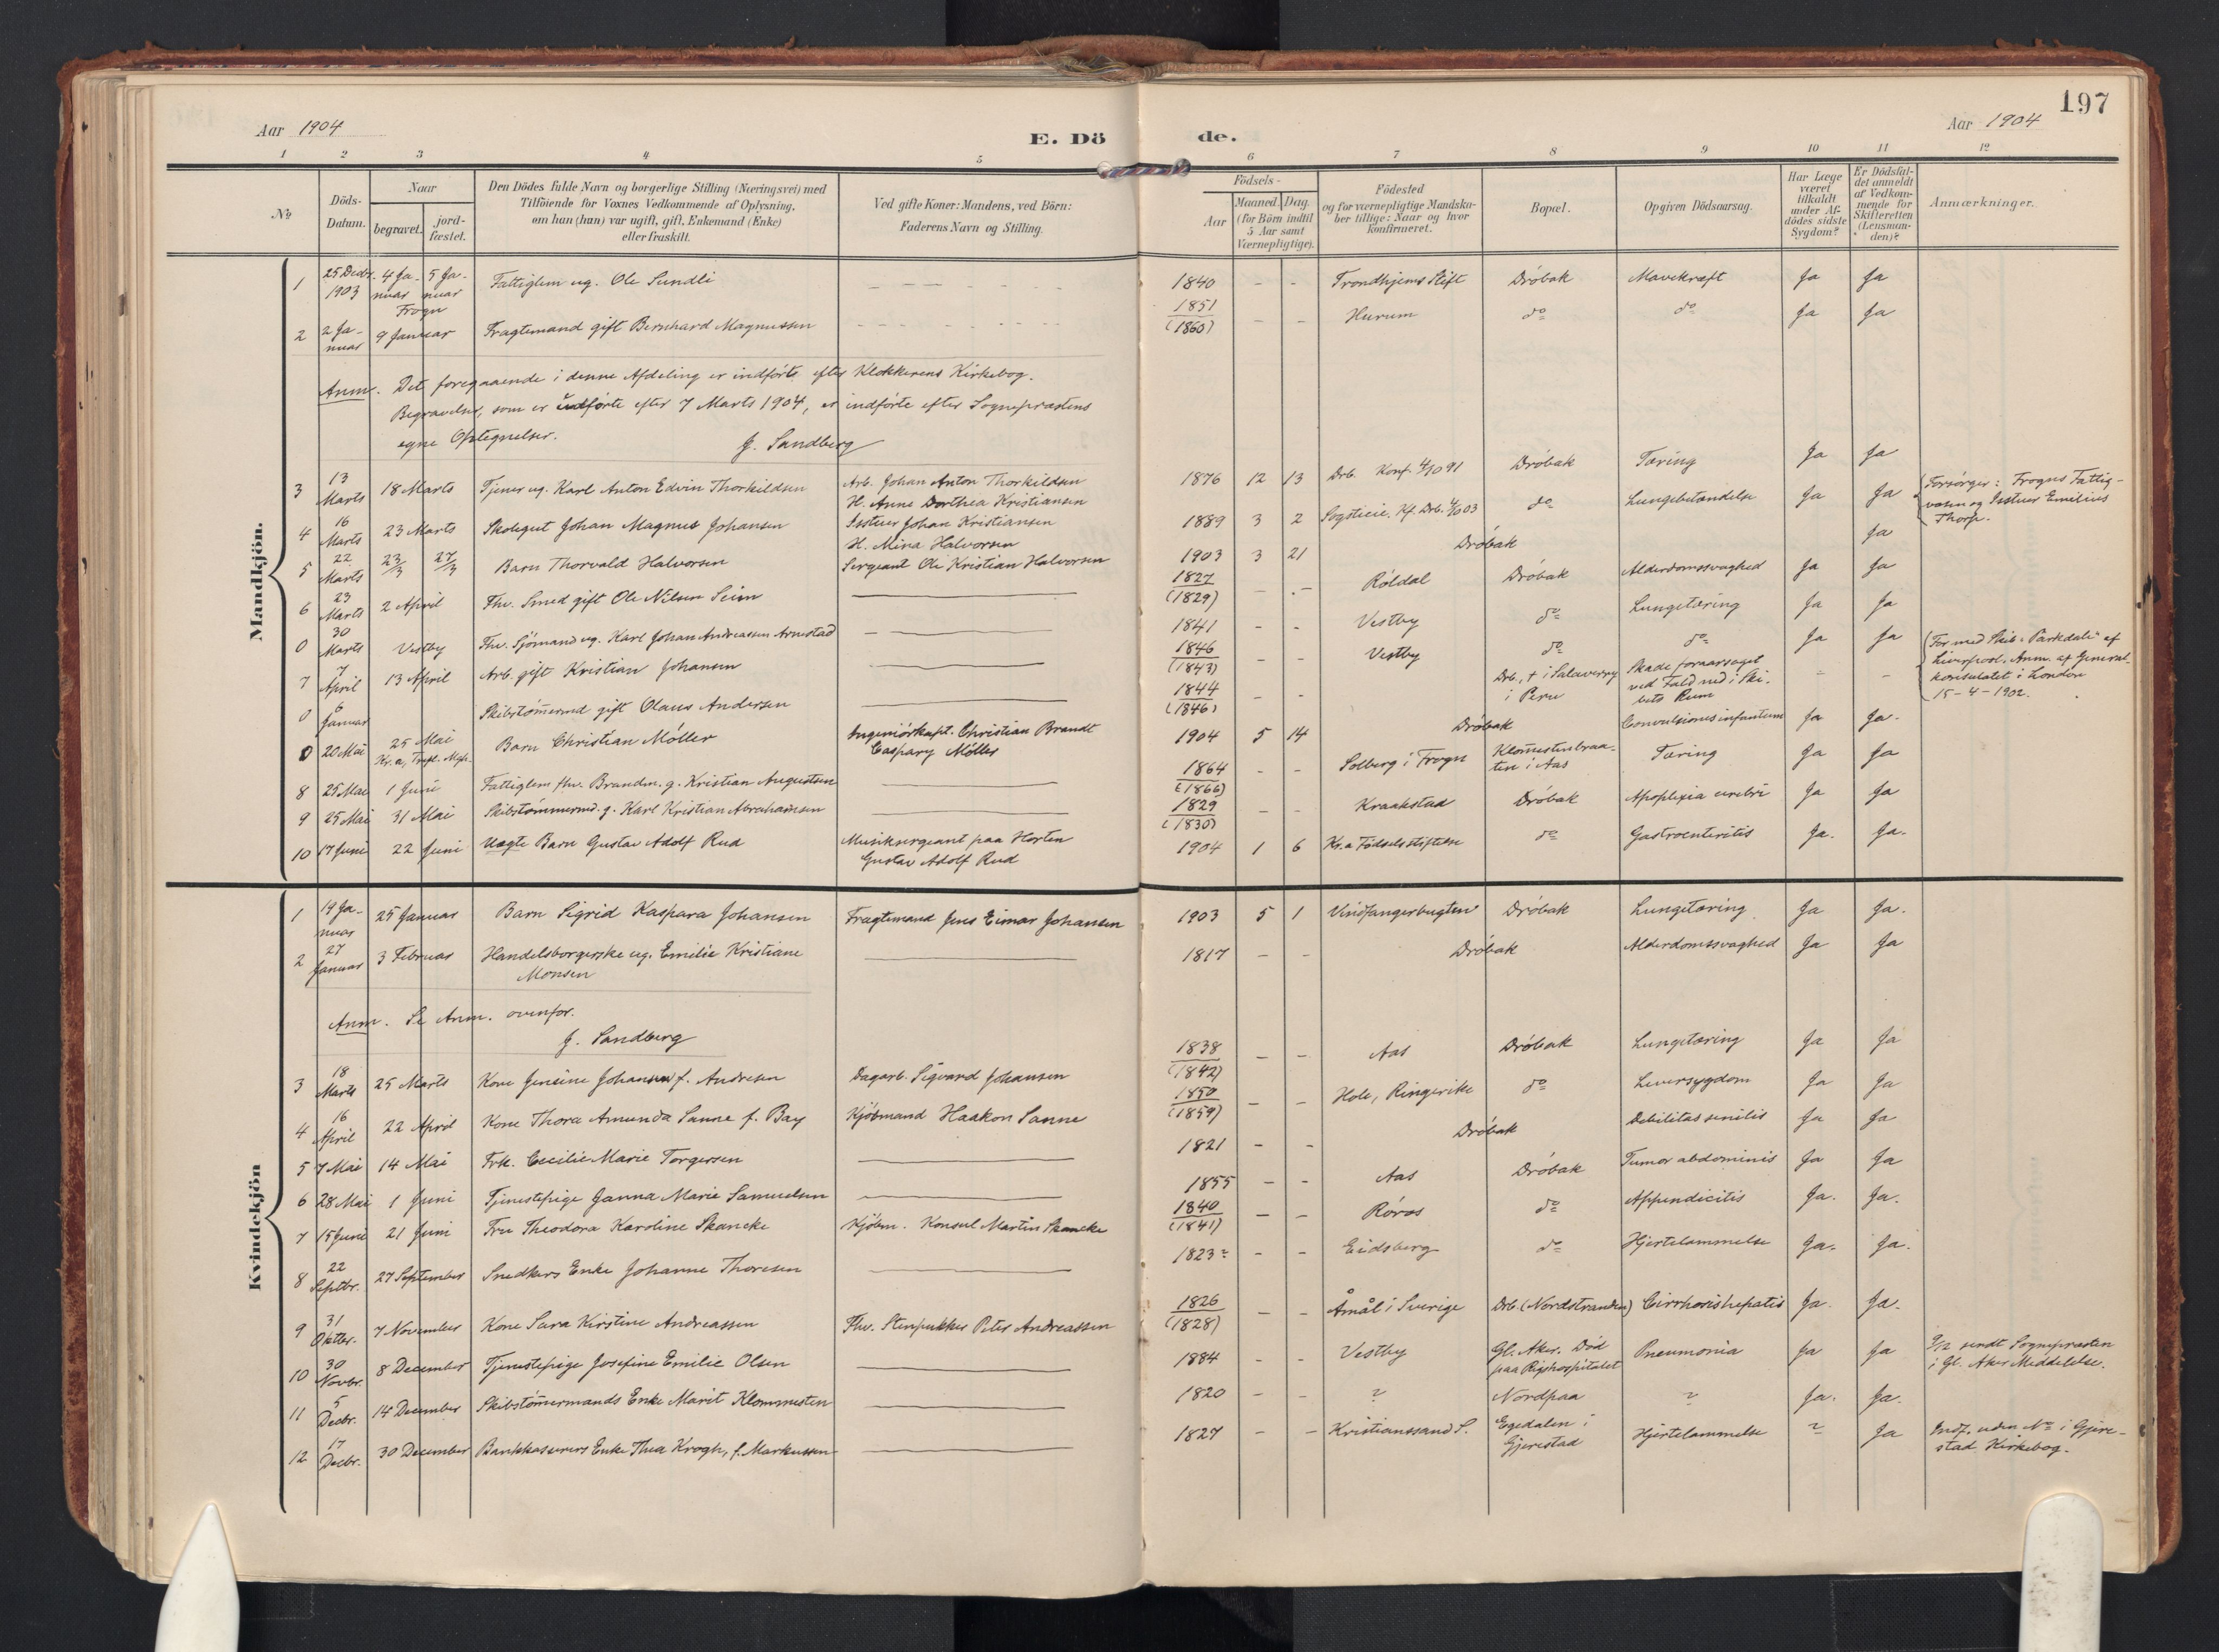 197
Aar 1904
E. Dö de.
Aar 1904
1 2 3 4 5 6 7 8 9 10 11 12
No
Döds-Datum.
Naar
begravet.
jord-fæstet.
Den Dödes fulde Navn og borgerlige Stilling (Næringsvei) med
Tilföiende for Voxnes Vedkommende af Oplysning,
om han (hun) var ugift, gift, Enkemand (Enke)
eller fraskilt.
Ved gifte Koner: Mandens, ved Börn:
Faderens Navn og Stilling.
Födsels-
Aar
Maaned. Dag.
(for Börn indtil
5 Aar samt
Værnepligtige).
Födested
og for værnepligtige Mandska-
ber tillige: Naar og hvor
konfirmeret.
Bopæl.
Opgiven Dödsaarsag.
Har Læge
været
tilkaldt
under Af-
dödes sidste
Sygdom?
Er Dödsfal-
det anmeldt
af Vedkom-
mende for
Skifteretten
(Lensman-
den)?
Anmærkninger.
Mandkjön.
1 25 Decbr. 1903 4 Januar Frogn 5 Januar Fattiglem ug. Ole Sundli 1840 - - Trondhjems Stift Dröbak Mavekræft Ja Ja
2 2 Januar 9 Januar Fragtemand gift Bernhard Magnussen 1851 (1860) - - Hurum do do Ja Ja
Anm. Det foregaaende i denne Afdeling er indförte efter Klokkerens Kirkebog.
Begravelser, som er indförte efter 7 Marts 1904, er indförte efter Sognepræstens
egne Optegnelser.
J. Sandberg
3 13 Marts 18 Marts Tjener ug. Karl Anton Edvin Thorkildsen Arb. Johan Anton Thorkildsen H. Anne Dorthea Kristiansen 1876 12 13 Drb. Konf. 4/10 91 Dröbak Tæring Ja Ja
4 16 Marts 23 Marts Skolegut Johan Magnus Johansen Isstuer Johan Kristiansen H. Mina Halvorsen 1889 3 2 Kf. Drb. 4/10 03 do Lungebetændelse Ja Ja Forsörger: Frogns Fattig-
væsen og Isstuer Emilius
Thorp.
5 22 Marts 23/3 27/3 Barn Thorvald Halvorsen Sergeant Ole Kristian Halvorsen 1903 3 21 Dröbak Ja
6 23 Marts 2 April Fhv. Smed gift Ole Nilsen Seim 1827 (1829) - - Röldal Dröbak Alderdomssvaghed Ja Ja
0 30 Marts Vestby Fhv. Sjömand ug. Karl Johan Andreassen Arnestad 1841 - - Vestby do Lungetæring Ja Ja
7 7 April 13 April Arb. gift Kristian Johansen 1846 (1843) - - Vestby do do Ja Ja
0 6 Januar Skibstömermd gift Olaus Andersen 1844 (1846) - - Drb., † i Salaverry i Peru Skade foraarsaget ved Fald ned i Ski-
bets Rum - - For med Skib "Parkdale" af
Liverpool. Anm. af General-
konsulatet i London
15-4-1902.
0 20 Mai 25 Mai Kr.a, Barn Christian Möller Ingeniörkapt. Christian Brandt Caspary Möller 1904 5 14 Dröbak Convulsiones infantum Ja Ja.
8 25 Mai 1 Juni Fattiglem fhv. Brandm. g. Kristian Augustsen 1864 (1866) - - Solberg i Frogn Klommestenbraa-
ten i Aas Tæring Ja Ja
9 25 Mai 31 Mai Skibstömmermd. g. Karl Kristian Abrahamsen 1829 (1830) - - Kraakstad Dröbak Apoplexia cerebri Ja Ja
10 17 Juni 22 Juni Uægte Barn Gustav Adolf Rud Musiksergeant paa Horten Gustav Adolf Rud 1904 1 6 Kr.a Födselsstiftelse do Gastroenteritis Ja. Ja.
Kvindekjön
1 19 Januar 25 Januar Barn Sigrid Kaspara Johansen Fragtemand Jens Eimar Johansen 1903 5 1 Vindfangerbugten Dröbak Lungetæring Ja Ja.
2 27 Januar 3 Februar Handelsborgerske ug. Emilie Kristiane Monsen 1817 - - Dröbak Alderdomssvaghed Ja Ja
Anm. Se Anm. ovenfor.
J. Sandberg
3 18 Marts 25 Marts Kone Jensine Johansen f. Andresen Dagarb. Sigvard Johansen 1838 (1842) - - Aas Dröbak Lungetæring Ja Ja
4 16 April 22 April Kone Thora Amunda Sanne f. Bay Kjöbmand Haakon Sanne 1850 (1859) - - Hole, Ringerike do Leversygdom Ja Ja
5 7 Mai 14 Mai Frk. Cecilie Marie Torgersen 1821 - - Dröbak Debilitas senilis Ja Ja
6 28 Mai 1 Juni Tjenestepige Janna Marie Samuelsen 1855 - - Aas Dröbak Tumor abdominis Ja Ja
7 15 Juni 21 Juni Fru Theodora Karoline Skancke Kjöbm. Konsul Martin Skancke 1840 (1841) - - Röros do Appendicitis Ja. Ja.
8 22 Septbr. 27 September Snedkers Enke Johanne Thoresen 1823 - - Eidsberg do Hjertelammelse Ja. Ja.
9 31 Oktbr. 7 November Kone Sara Kirstine Andreassen Fhv. Stenpukker Peter Andreassen 1826 (1828) - - Åmål i Sverige Drb. (Nordstranden) Cirrhosis hepatis Ja. Ja.
10 30 Novbr. 8 December Tjenestepige Josefine Emilie Olsen 1884 - - Vestby Gl. Aker. Död paa Rigshospitalet Pneumonia Ja Ja 9/12 sendt Sognepræsten
i Gl. Aker Meddelelse.
11 5 Decbr. 14 December Skibstömermands Enke Marit Klommesten 1820 - - ? Nordpaa ? Ja. Ja.
12 17 Decbr. 30 December Bankkasserers Enke Thea Krogh, f. Markussen 1827 - - Kristianssand S. Egedalen i Gjerestad Hjertelammelse ? Ja Indf. uden No i Gjere-
stad Kirkebog.